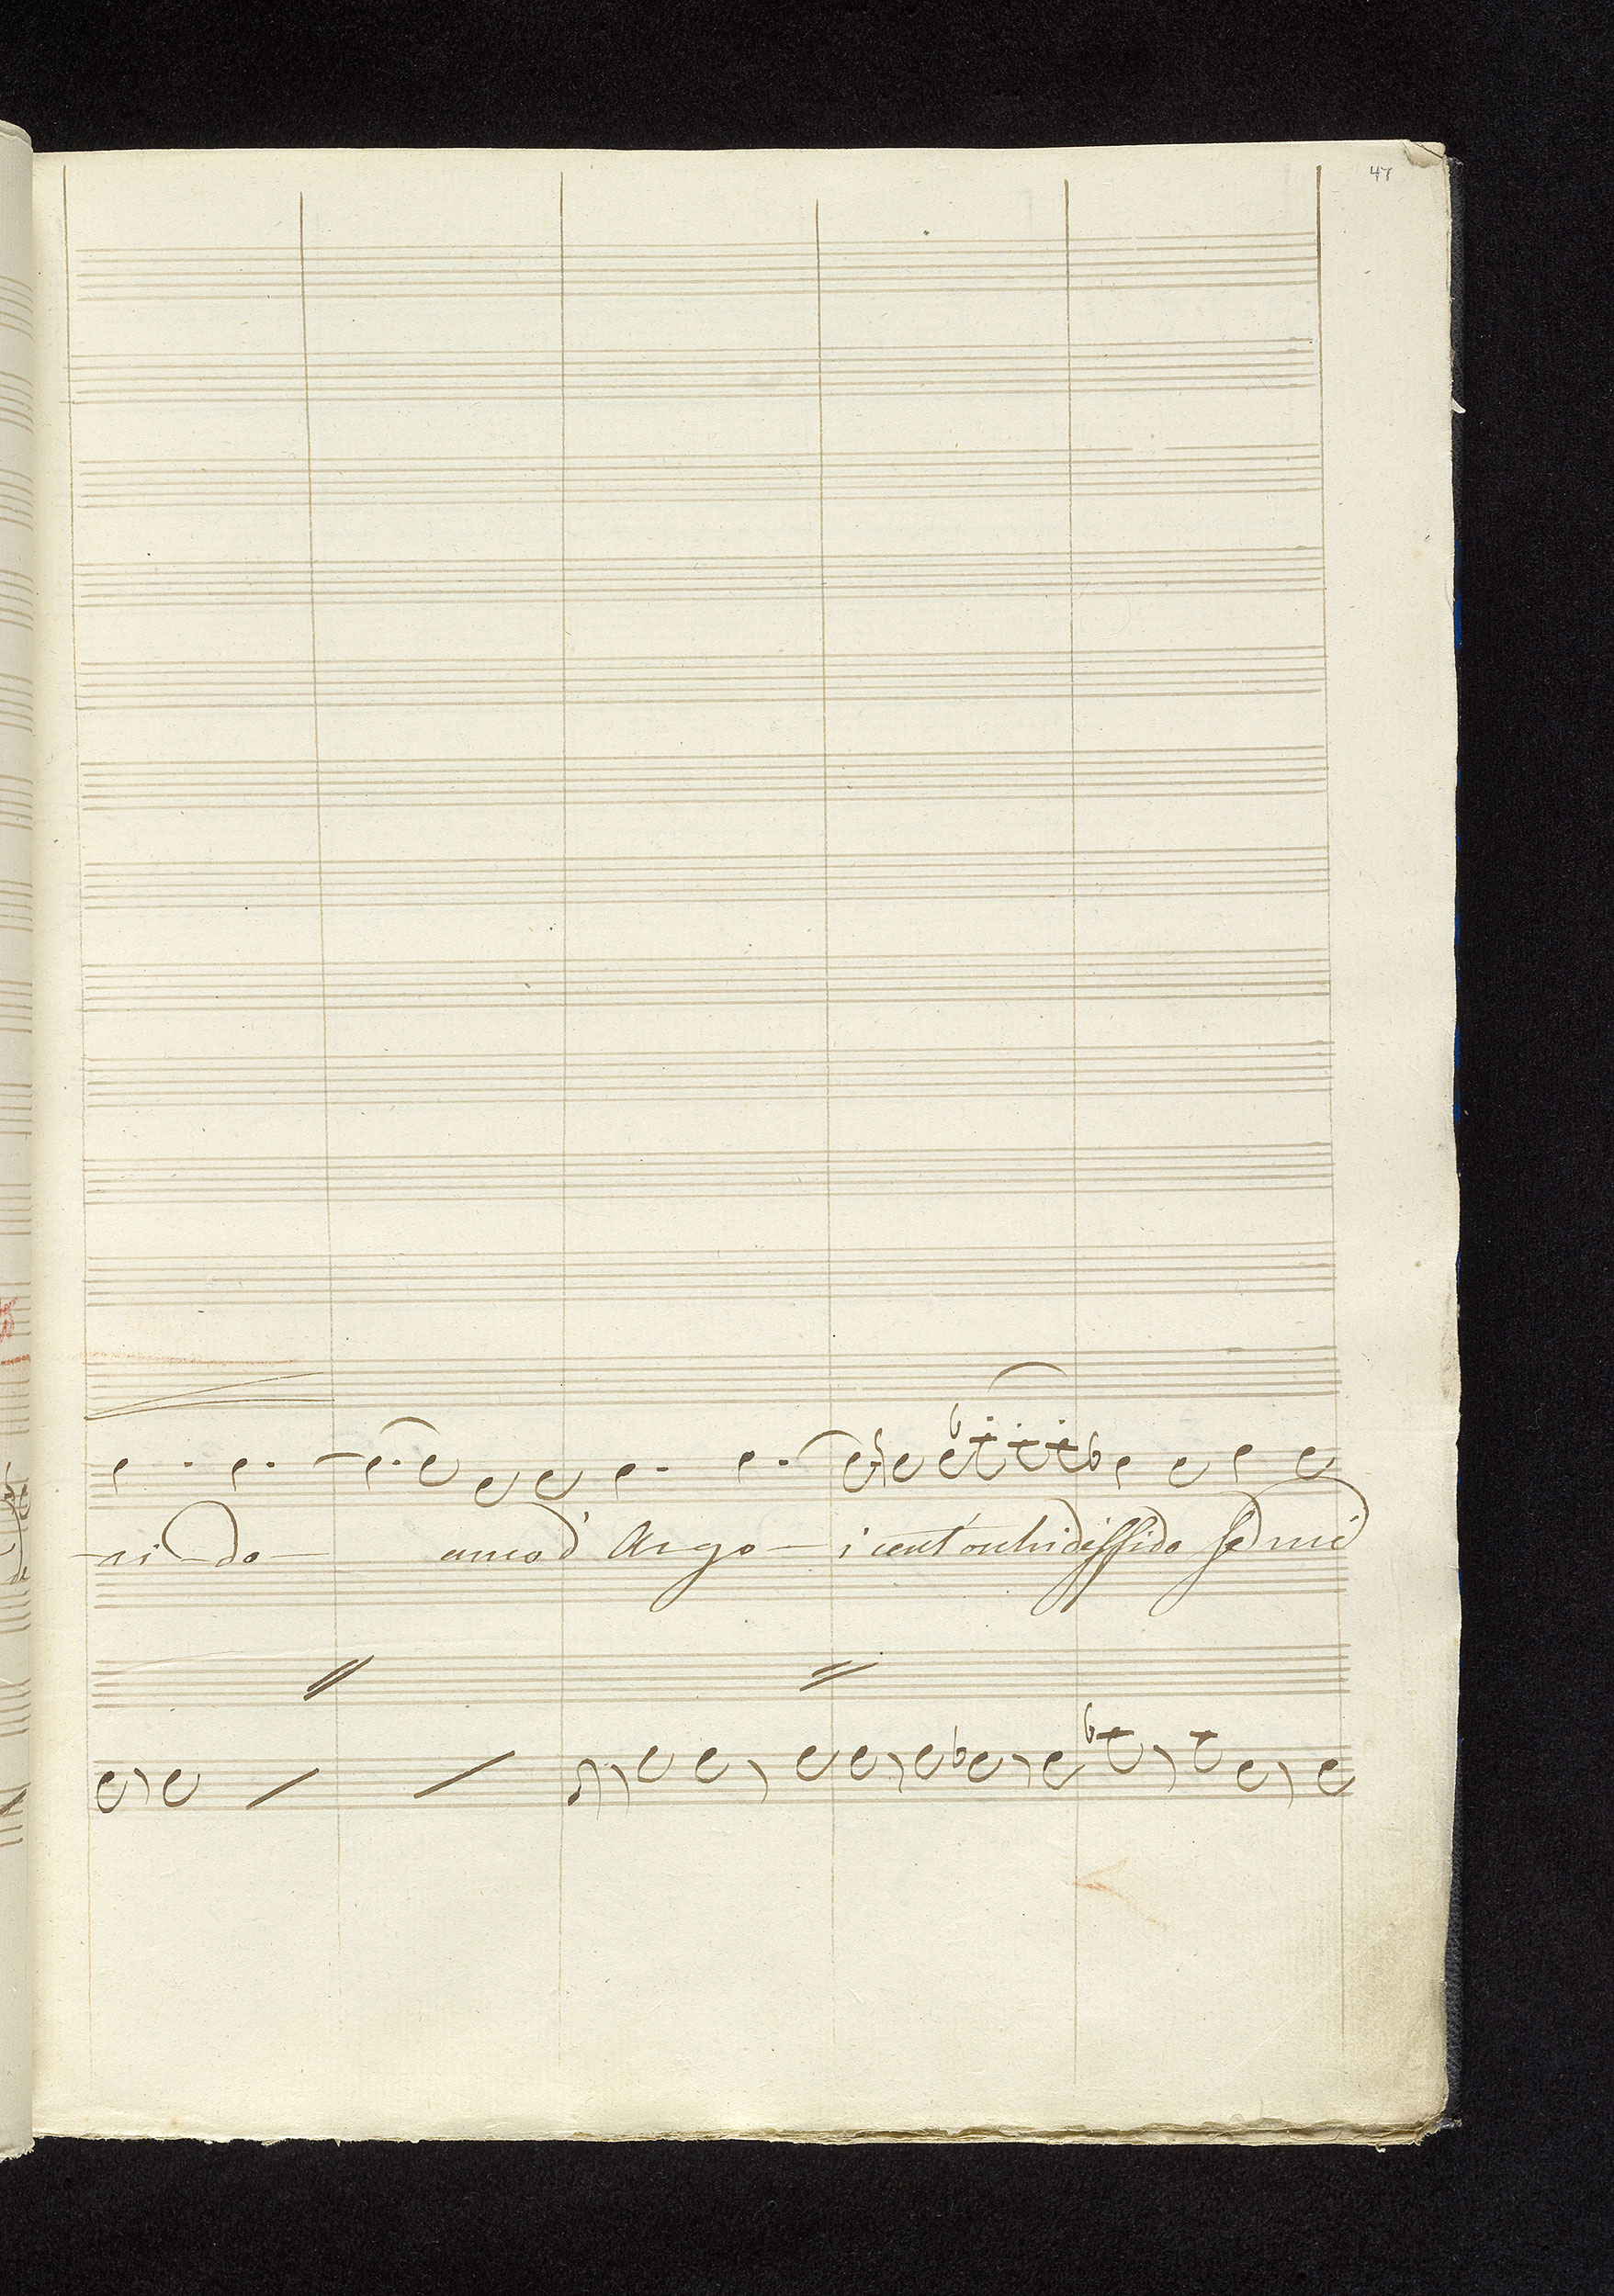 47
-ri-do- anco d'Argo-i cent'occhi disfido se mi